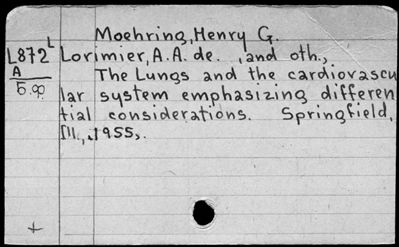 Moehring, Henry G.
L872 L Lorimier, A.A. de. , and oth.,
A The Lungs and the cardiovascu
5.00 lar system emphasizing differen
tial considerations. Springfield,
Ill., 1955,.